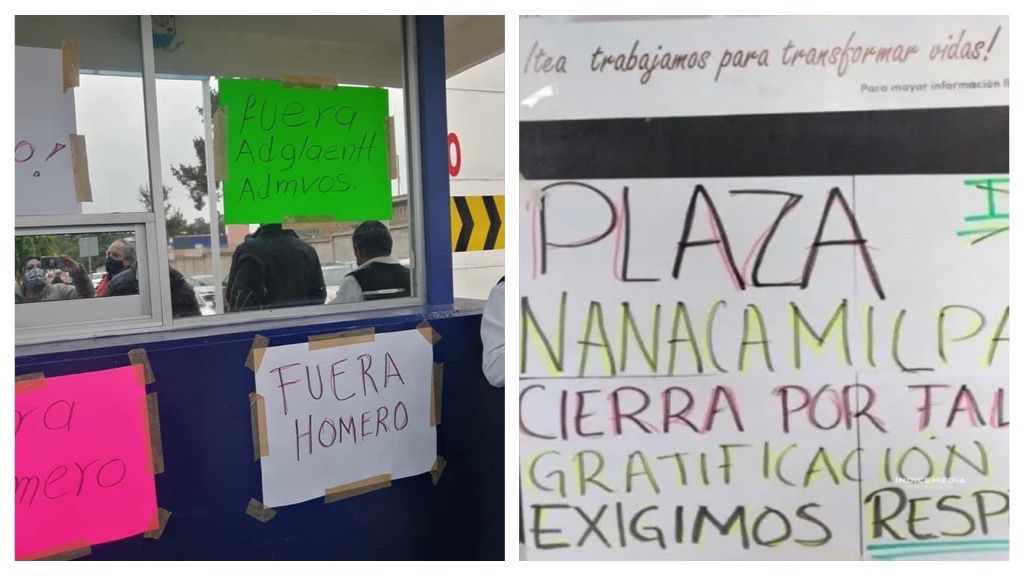 O!
Fuera
Adglaentt
Admvos.
O
ra
mero
FUERA
HOMERO
Itea trabajamos para transformar vidas!
Para mayor información II
PLAZA
NANACAMILPA
CIERRA POR FAL
GRATIFICACIÓN
EXIGIMOS RESP
INDICEMEDIA